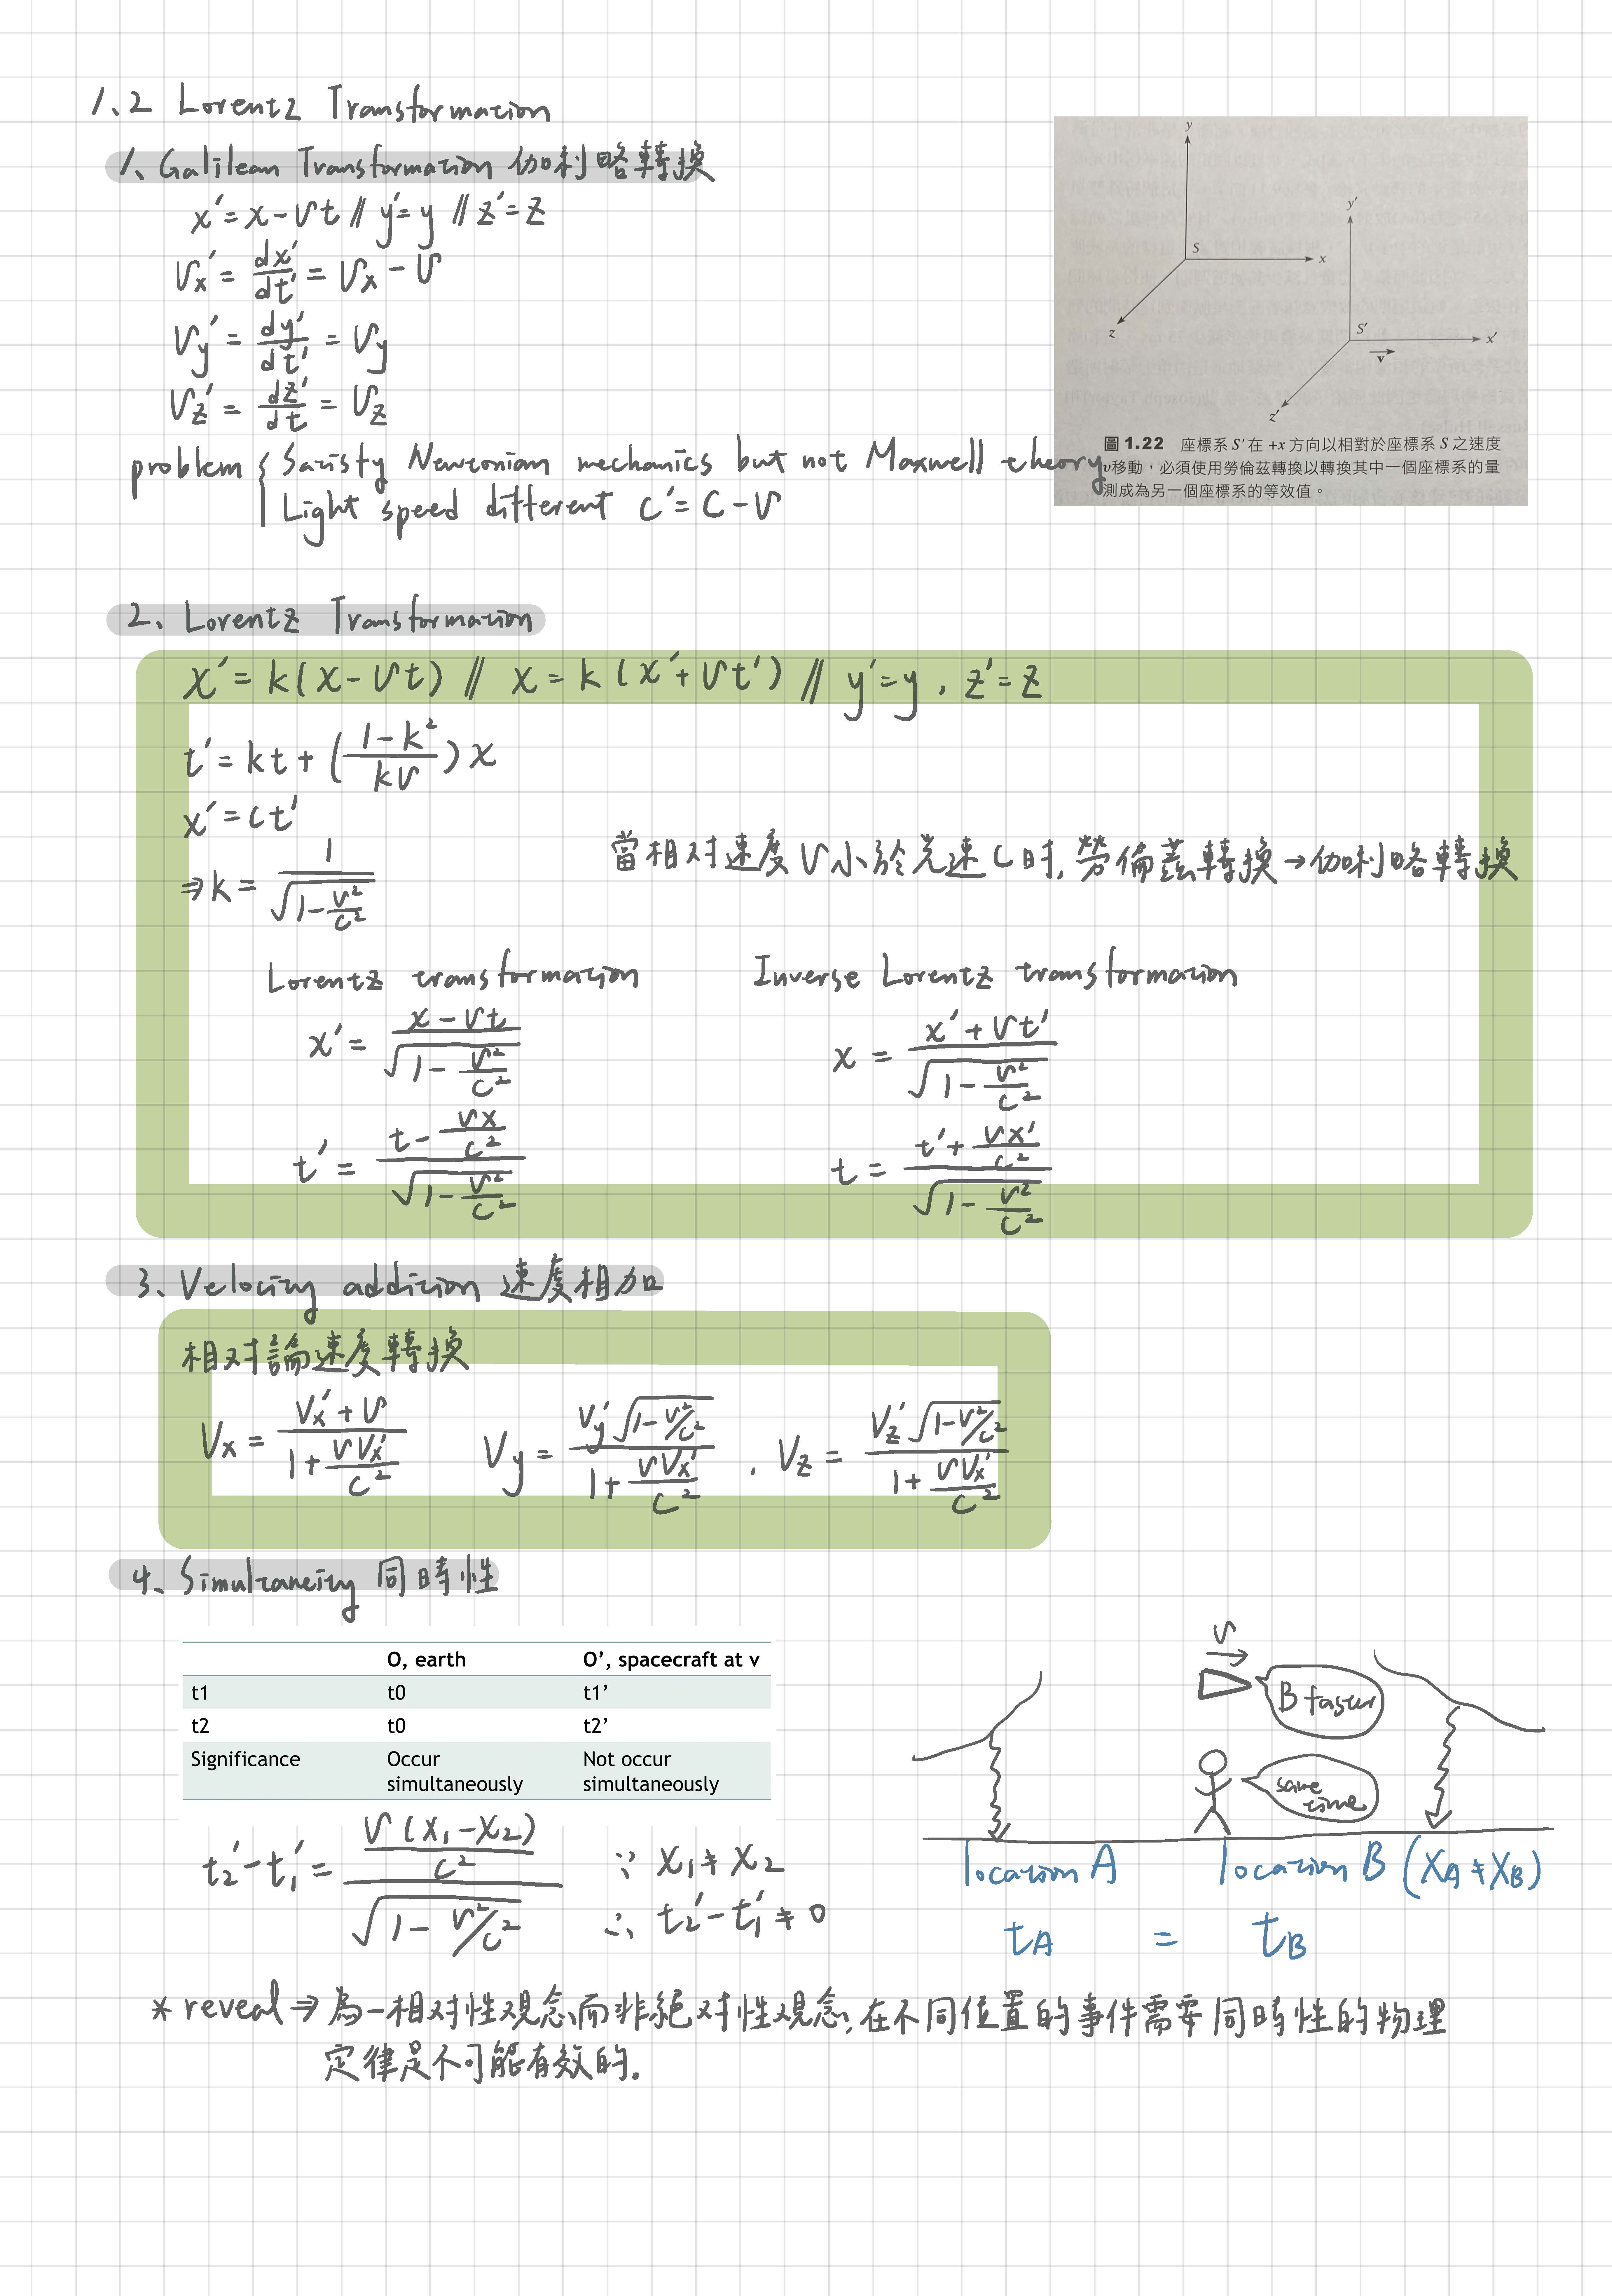 1、2 Lorentz Transformation
1、Galilean Transformation 伽利略轉換
x' = x - vt // y' = y // z' = z
Vx' = dx'/dt' = Vx - V
Vy' = dy'/dt' = Vy
Vz' = dz'/dt = Vz
problem { Satisfy Newtonian mechanics but not Maxwell theory
Light speed different c' = c - v
y
S
x
z
y'
S'
x'
v
z'
圖 1.22 座標系 S' 在 +x 方向以相對於座標系 S 之速度
v移動，必須使用勞倫茲轉換以轉換其中一個座標系的量
測成為另一個座標系的等效值。
2、Lorentz Transformation
x' = k(x - vt) // x = k(x' + vt') // y' = y , z' = z
t' = kt + ((1 - k²)/(kv))x
x' = ct'
⇒ k = 1/√(1 - v²/c²)
當相对速度 V 小於光速 C 时, 勞倫茲轉換 → 伽利略轉換
Lorentz transformation
x' = (x - vt)/√(1 - v²/c²)
t' = (t - vx/c²)/√(1 - v²/c²)
Inverse Lorentz transformation
x = (x' + vt')/√(1 - v²/c²)
t = (t' + vx'/c²)/√(1 - v²/c²)
3、Velocity addition 速度相加
相对論速度轉換
Vx = (Vx' + V)/(1 + VVx'/c²) Vy = (Vy'√(1 - v²/c²))/(1 + VVx'/c²) , Vz = (Vz'√(1 - v²/c²))/(1 + VVx'/c²)
4、Simultaneity 同時性
O, earth O', spacecraft at v
t1 t0 t1'
t2 t0 t2'
Significance Occur simultaneously Not occur simultaneously
t2' - t1' = (v(x1 - x2)/c²)/√(1 - v²/c²)
∵ x1 ≠ x2
∴ t2' - t1' ≠ 0
v
B faster
same
time
location A location B (XA ≠ XB)
tA = tB
* reveal ⇒ 為一相对性观念、而非絕对性观念, 在不同位置的事件需要同時性的物理
定律是不可能有效的.